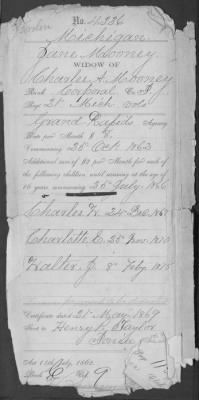 No. 4336
Michigan
Jane Mooney
WIDOW OF
Charles A. Mooney
Rank Corporal Co. F
Regt 21" Mich vols
Grand Rapids Agency
Rate per Month $ 8
Commencing 25" Oct 1862
Additional sum of $2 per month for each of
the following children, until arriving at the age of
16 years, commencing 25" July 1866
Charles
Charlotte E. 25
Walter J. 8"
Certificate dated 21" May 1869
Sent to Henry Taylor
Act 14th July, 1862.
Book C 9